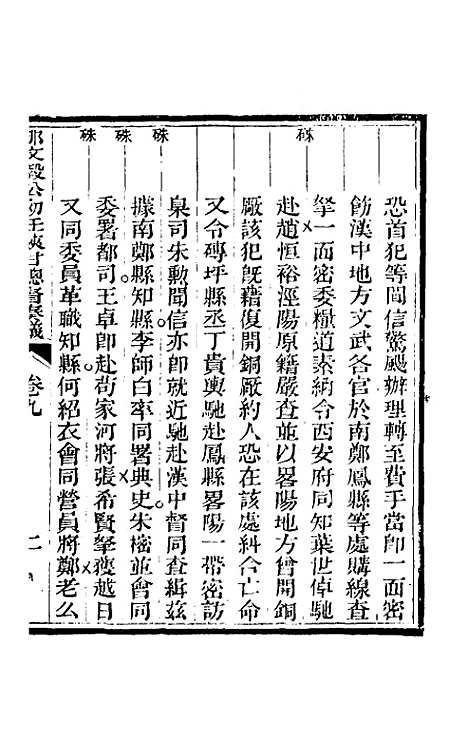 恐首犯等聞信驚颺辦理轉至費手當卽一面密
飭漢中地方文武各官於南鄭鳳縣等處購線查
拏一面密委糧道素納合西安府同知葉世倬馳
赴趙恒裕涇陽原籍嚴查並以畧陽地方曾開銅
廠該犯旣藉復開銅厰約人恐在該處糾合亡命
又令磚坪縣丞丁貴輿馳赴鳳縣畧陽一帶密訪
臬司朱勳聞信亦卽就近馳赴漢中督同查緝茲
據南鄭縣知縣李師白率同署典史朱榕並會同
委署都司王卓卽赴苟家河將張希賢拏獲越日
又同委員革職知縣何紹衣會同營員將鄭老么
那文毅公初任陝甘總督奏議
卷九
二
硃
硃
硃
硃